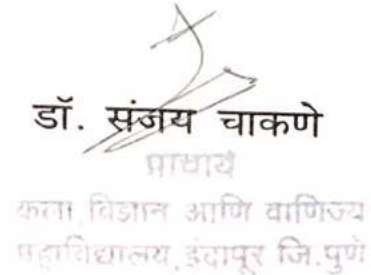 डॉ. संजय चाकणे
प्राचार्य
कला, विज्ञान आणि वाणिज्य
महाविद्यालय, इंदापूर जि.पुणे